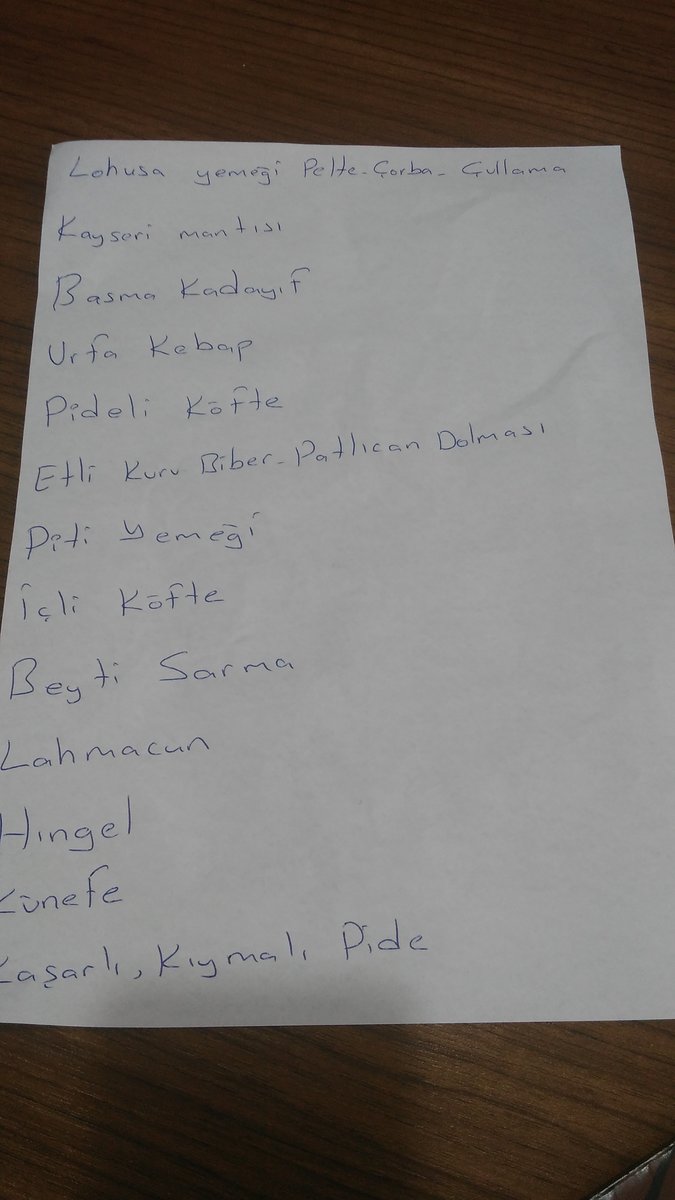 Lohusa yemeği Pelte-Çorba-Çullama
Kayseri mantısı
Basma Kadayıf
Urfa Kebap
Pideli Köfte
Etli Kuru Biber-Patlıcan Dolması
Piti Yemeği
İçli Köfte
Beyti Sarma
Lahmacun
Hıngel
Künefe
Kaşarlı, Kıymalı Pide